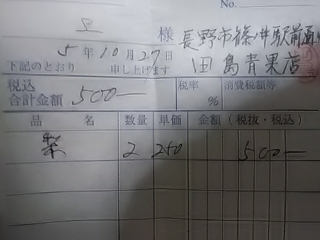 No.
上 様
5年10月27日
長野市篠ノ井駅前通り
田島青果店
下記のとおり 申し上げます
税込合計金額 500― 税率 % 消費税額等
品名 数量 単価 金額(税抜・税込)
梨 2 250 500―